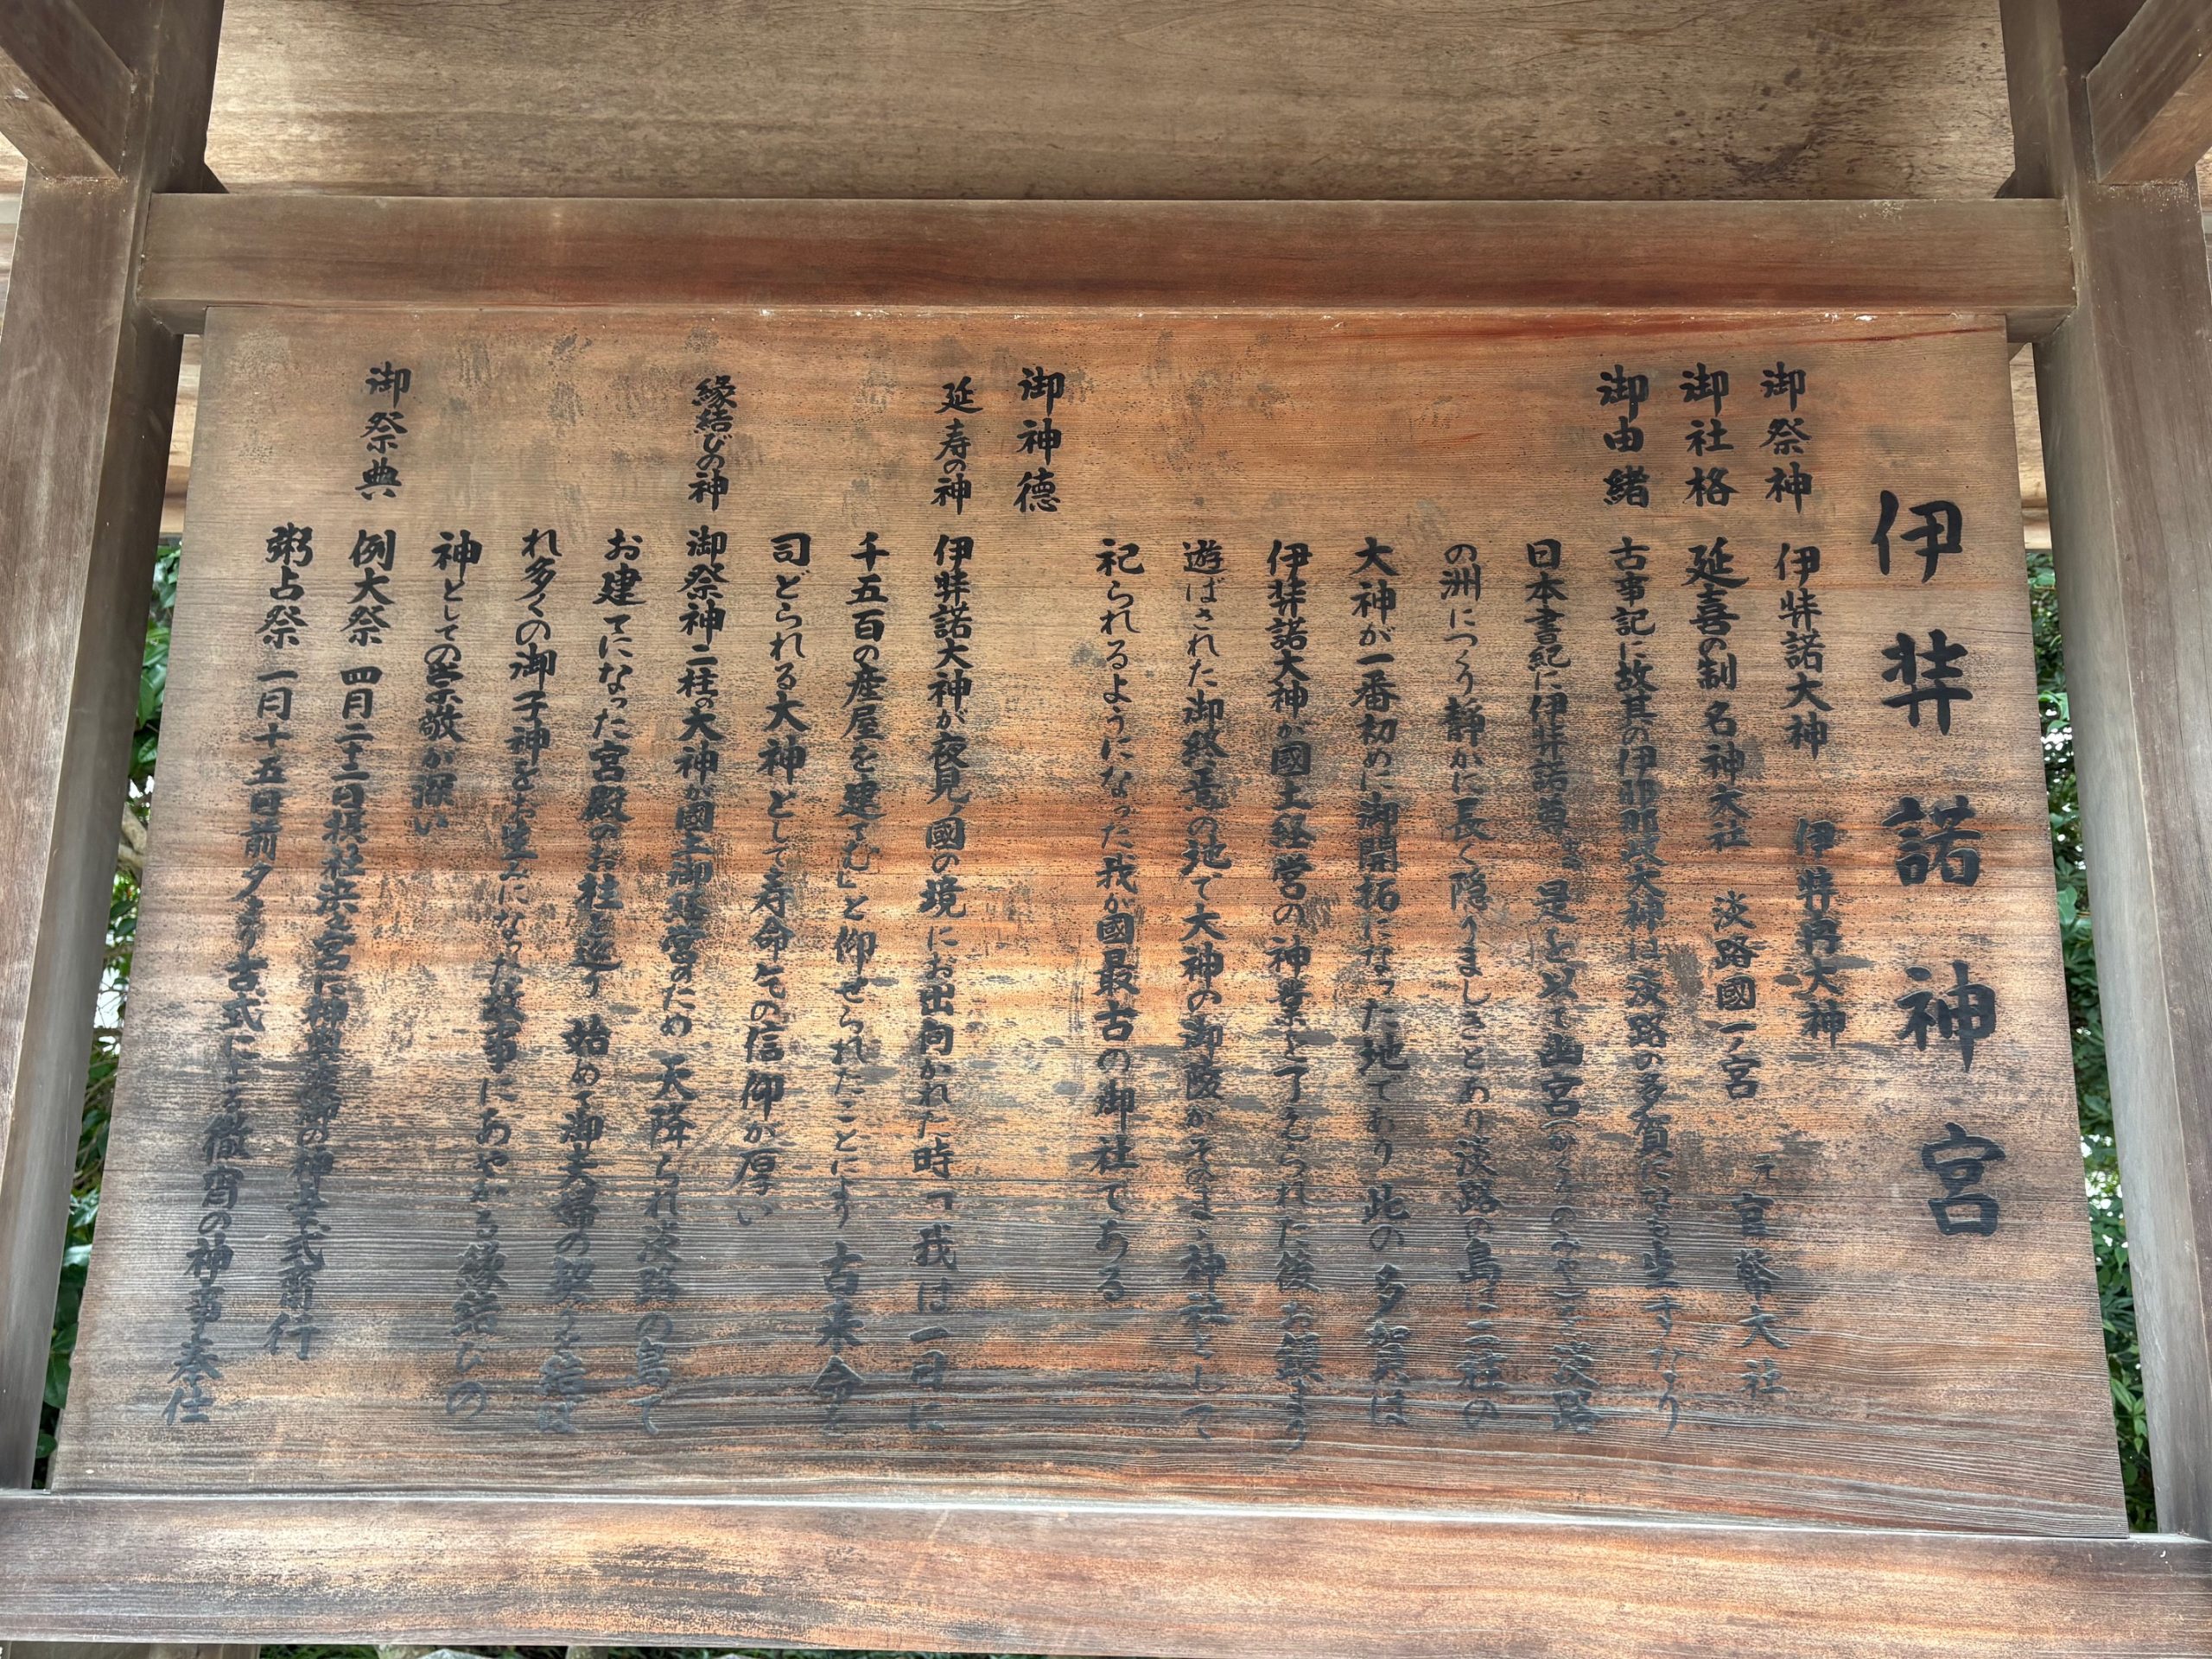 伊弉諾神宮
御祭神 伊弉諾大神 伊弉冉大神
御社格 延喜の制名神大社 淡路國一ノ宮 元官幣大社
御由緒 古事記に故其の伊邪那岐大神は淡路の多賀になも坐すなり
日本書紀に伊弉諾尊は是を以て幽宮(かくりのみや)を淡路
の洲につくり静かに長く隠りましきとあり淡路の島は二柱の
大神が一番初めに御開拓になった地であり此の多賀は
伊弉諾大神が國土経営の神業を了えられた後お鎮まり
遊ばされた御終焉の地で大神の御陵がそのまゝ神社として
祀られるようになった我が國最古の御社である
御神徳
延寿の神 伊弉諾大神が夜見國の境にお出向かれた時「我は一日に
千五百の産屋を建てむ」と仰せられたことにより古来命を
司どられる大神として寿命乞の信仰が厚い
縁結びの神 御祭神二柱の大神が國土御経営のため天降られ淡路の島で
お建てになった宮殿のお柱を巡り始めて御夫婦の契りを結ば
れ多くの御子神をお生みになった故事にあやかる縁結びの
神としての崇敬が深い
御祭典 例大祭 四月二十二日 濱之宮に神輿渡御の神幸式斎行
粥占祭 一月十五日前夕より古式による徹宵の神事奉仕